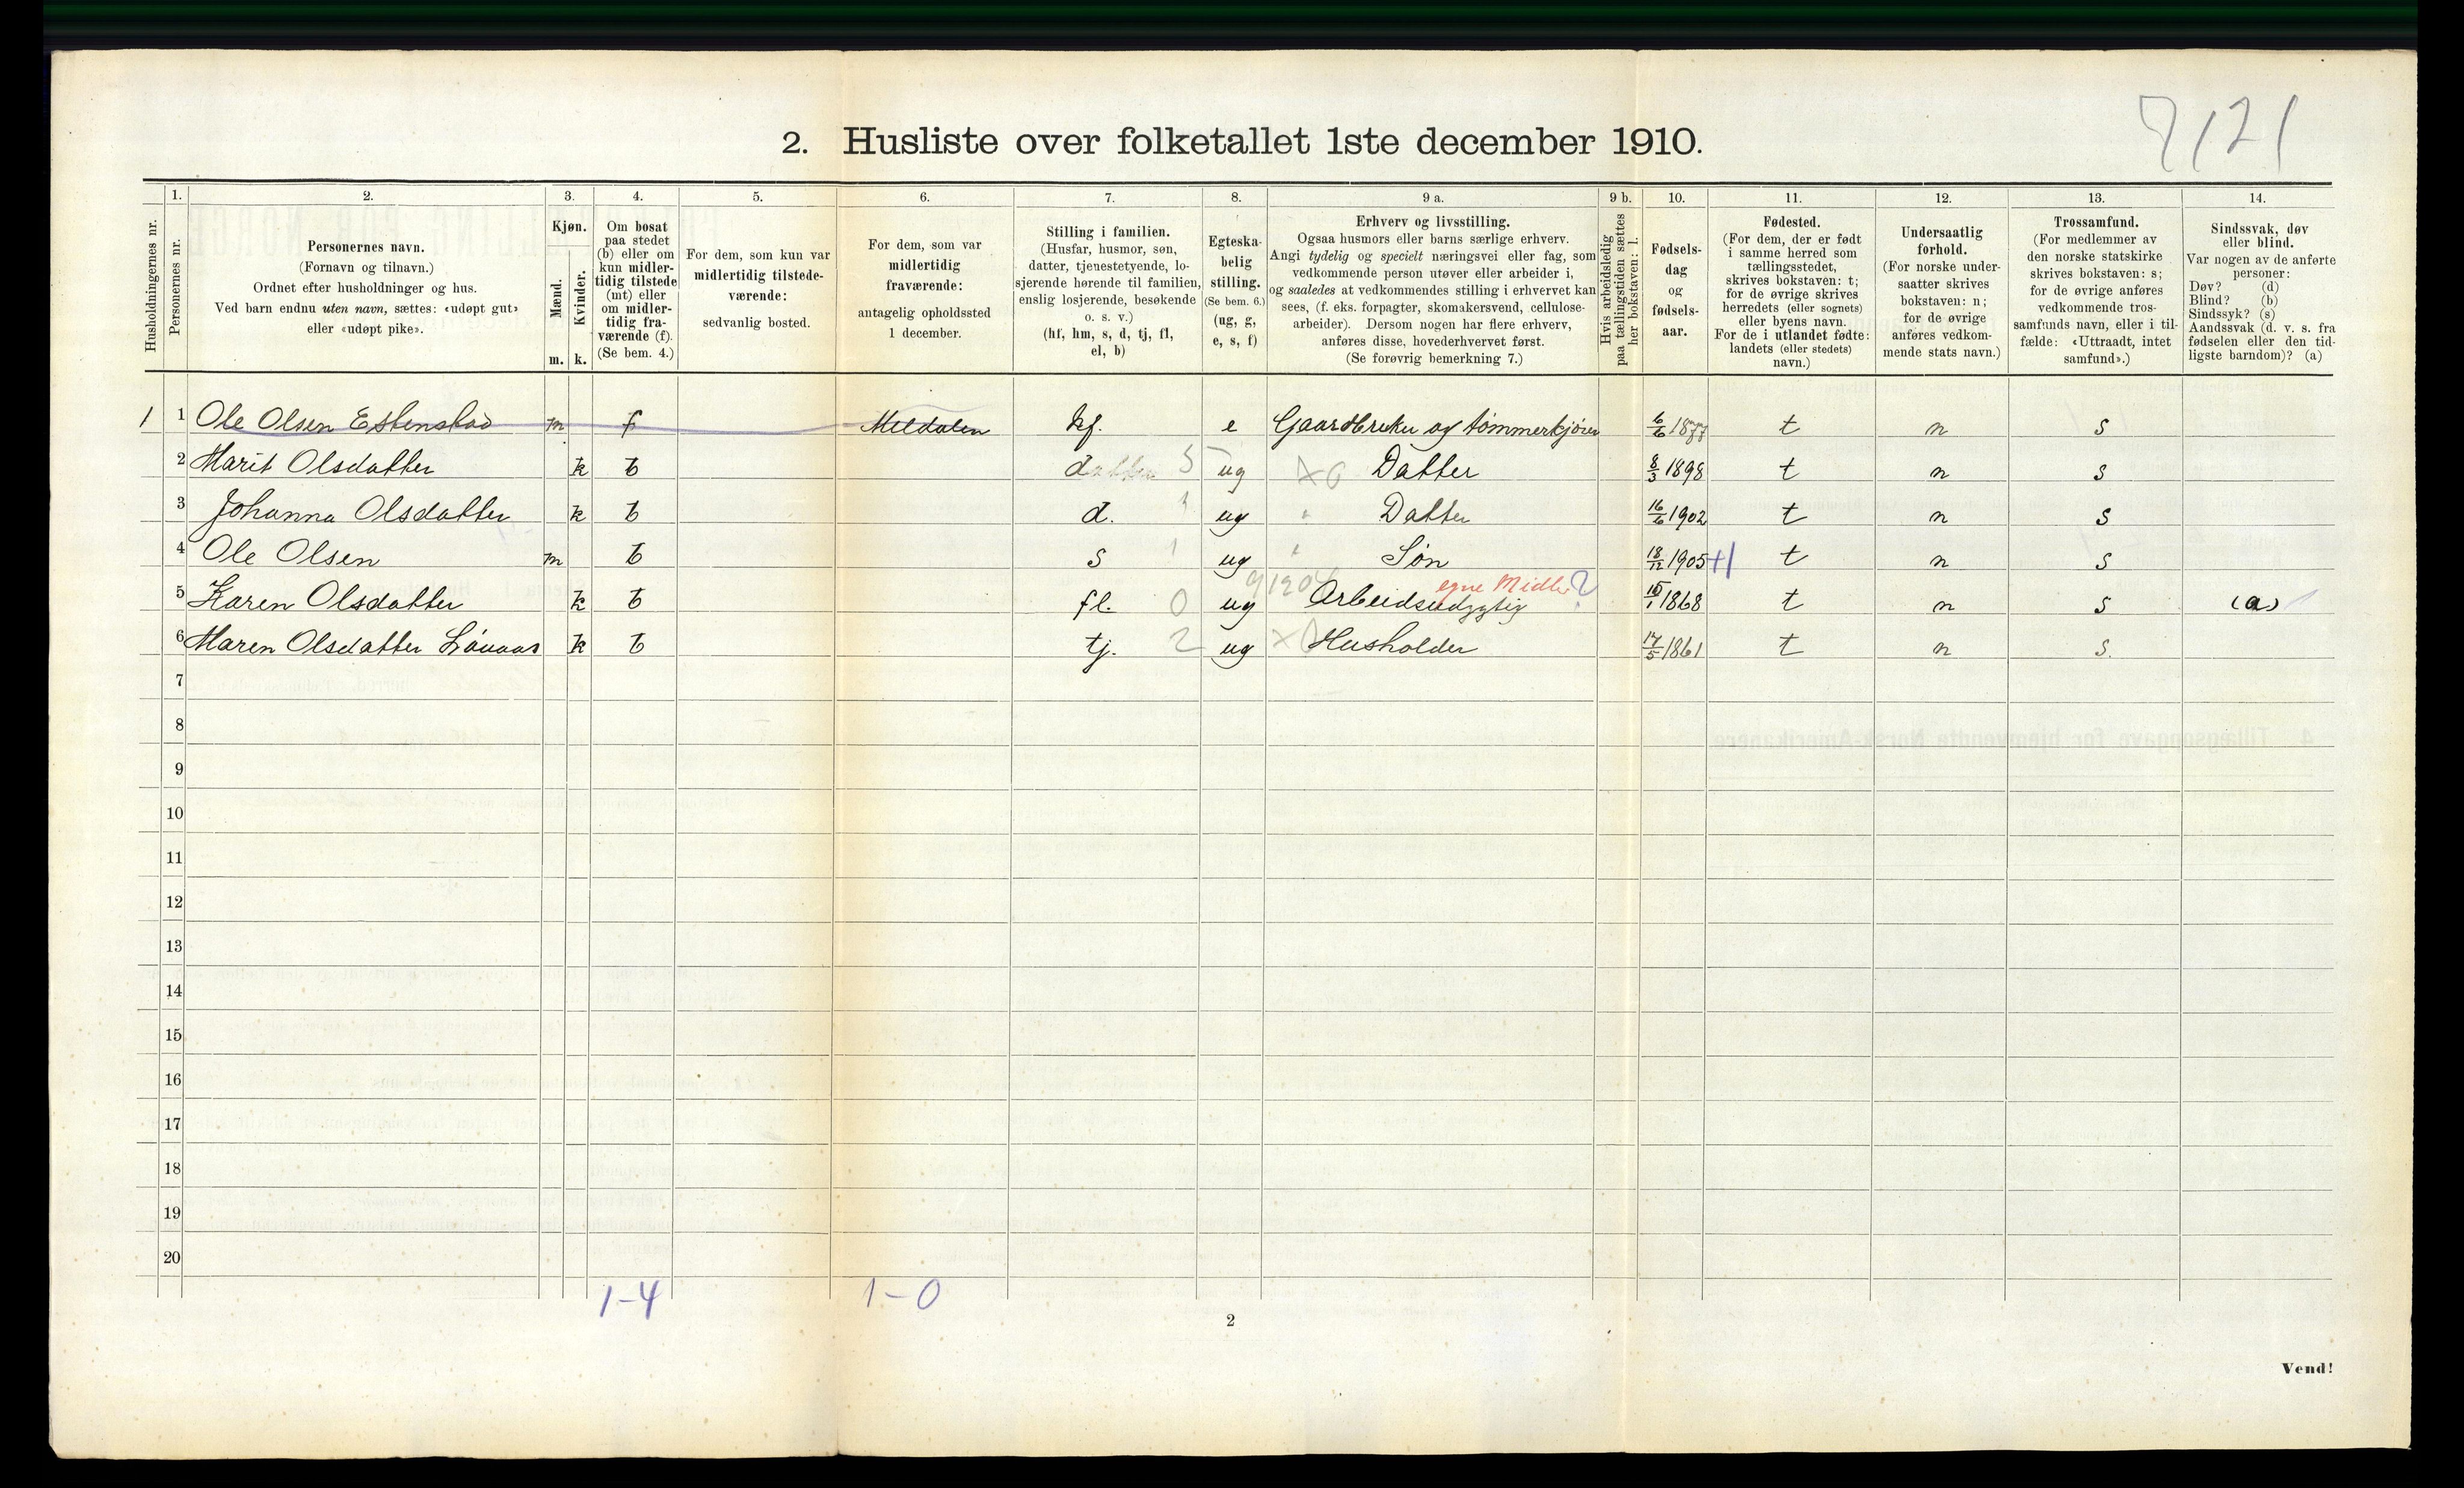 7121
2. Husliste over folketallet 1ste december 1910.
Husholdningernes nr.
1.
Personernes nr.
2.
Personernes navn.
(Fornavn og tilnavn.)
Ordnet efter husholdninger og hus.
Ved barn endnu uten navn, sættes: «udøpt gut»
eller «udøpt pike».
3.
Kjøn.
Mænd.
Kvinder.
m. k.
4.
Om bosat
paa stedet
(b) eller om
kun midler-
tidig tilstede
(mt) eller
om midler-
tidig fra-
værende (f).
(Se bem. 4.)
5.
For dem, som kun var
midlertidig tilstede-
værende:
sedvanlig bosted.
6.
For dem, som var
midlertidig
fraværende:
antagelig opholdssted
1 december.
7.
Stilling i familien.
(Husfar, husmor, søn,
datter, tjenestetyende, lo-
sjerende hørende til familien,
enslig losjerende, besøkende
o. s. v.)
(hf, hm, s, d, tj, fl,
el, b)
8.
Egteska-
belig
stilling.
(Se bem. 6.)
(ug, g,
e, s, f)
9 a.
Erhverv og livsstilling.
Ogsaa husmors eller barns særlige erhverv.
Angi tydelig og specielt næringsvei eller fag, som
vedkommende person utøver eller arbeider i,
og saaledes at vedkommendes stilling i erhvervet kan
sees, (f. eks. forpagter, skomakersvend, cellulose-
arbeider). Dersom nogen har flere erhverv,
anføres disse, hovederhvervet først.
(Se forøvrig bemerkning 7.)
9 b.
Hvis arbeidsledig
paa tællingstiden sættes
her bokstaven: l.
10.
Fødsels-
dag
og
fødsels-
aar.
11.
Fødested.
(For dem, der er født
i samme herred som
tællingsstedet,
skrives bokstaven: t;
for de øvrige skrives
herredets (eller sognets)
eller byens navn.
For de i utlandet fødte:
landets (eller stedets)
navn.)
12.
Undersaatlig
forhold.
(For norske under-
saatter skrives
bokstaven: n;
for de øvrige
anføres vedkom-
mende stats navn.)
13.
Trossamfund.
(For medlemmer av
den norske statskirke
skrives bokstaven: s;
for de øvrige anføres
vedkommende tros-
samfunds navn, eller i til-
fælde: «Uttraadt, intet
samfund».)
14.
Sindssvak, døv
eller blind.
Var nogen av de anførte
personer:
Døv? (d)
Blind? (b)
Sindssyk? (s)
Aandssvak (d. v. s. fra
fødselen eller den tid-
ligste barndom)? (a)
1 1 Ole Olsen Estenstad m f Meldalen hf. e Gaardbruker og tømmerkjører 6/6 1877 t n s
2 Marit Olsdatter k b datter 5 ug X0 Datter 8/3 1898 t n s
3 Johanna Olsdatter k b d. 1 ug " Datter 16/6 1902 t n s
4 Ole Olsen m b s 1 ug " Søn 18/12 1905 +1 t n s
egne Midler ?
5 Karen Olsdatter k b fl. 0 ug Arbeidsudygtig 15/1 1868 t n s (a)
6 Maren Olsdatter Løvaas k b tj. 2 ug X0 Husholder 17/5 1861 t n s.
7
8
9
10
11
12
13
14
15
16
17
18
19
20
1-4 1-0
2
Vend!